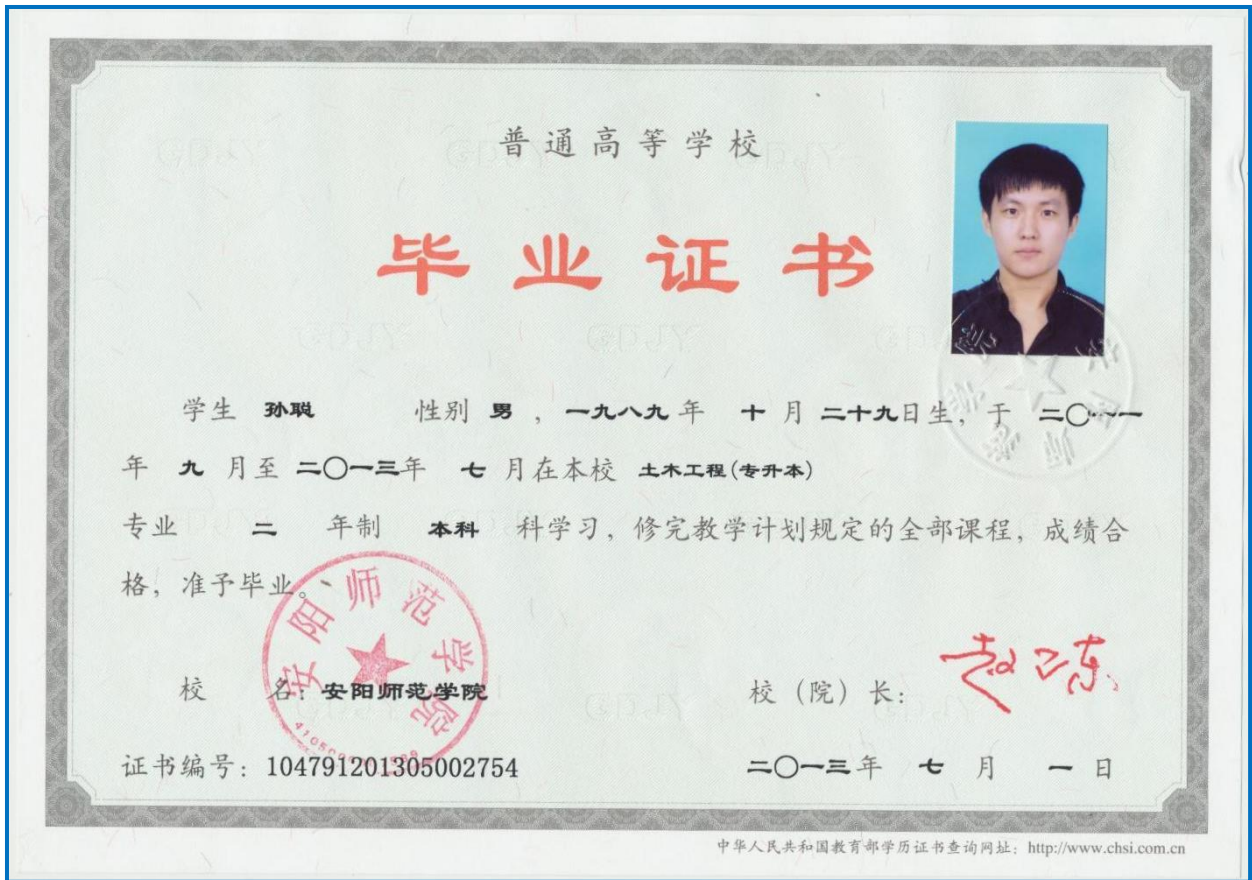 普通高等学校
毕业证书
学生 孙聪 性别 男 ，一九八九 年 十 月 二十九日生，于 二〇一一
年 九 月至 二〇一三年 七 月在本校 土木工程(专升本)
专业 二 年制 本科 科学习，修完教学计划规定的全部课程，成绩合
格，准予毕业。
安阳师范学院
校 名：安阳师范学院
校（院）长：
证书编号：104791201305002754
二〇一三年 七 月 一 日
中华人民共和国教育部学历证书查询网址：http://www.chsi.com.cn